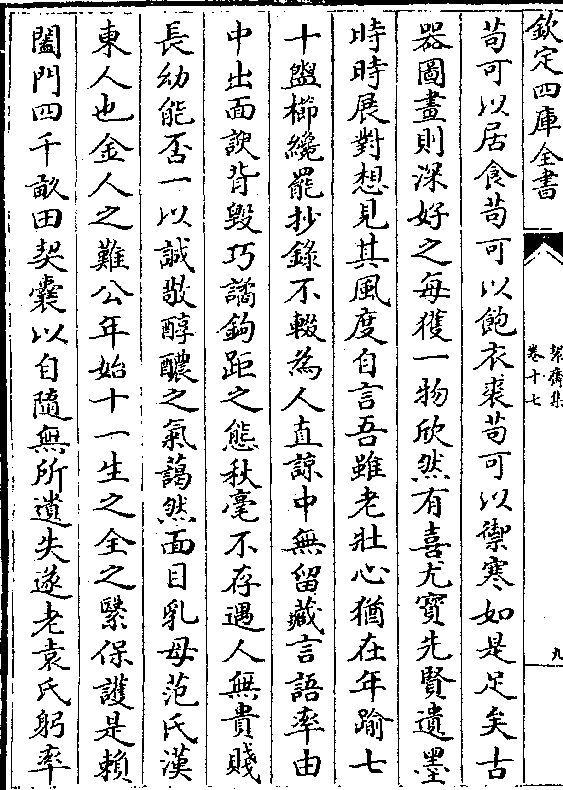 欽定四庫全書
絜齋集
卷十七
九
苟可以居食苟可以飽衣裘苟可以禦寒如是足矣古
器圖畫則深好之每獲一物欣然有喜尤寳先賢遺墨
時時展對想見其風度自言吾雖老壯心猶在年踰七
十盥櫛纔罷抄錄不輟為人直諒中無留藏言語率由
中出面諛背毁巧譎鉤距之態秋毫不存遇人無貴賤
長幼能否一以誠敬醇醲之氣藹然面目乳母范氏漢
東人也金人之難公年始十一生之全之緊保護是賴
闔門四千畝田契囊以自隨無所遺失遂老袁氏躬率